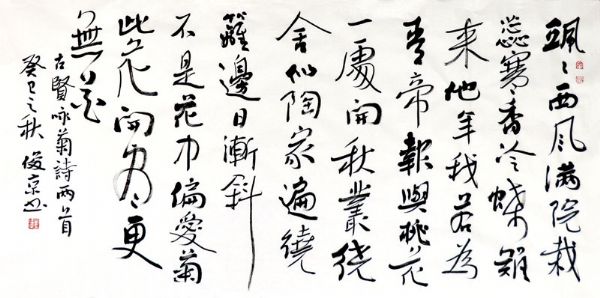 颯々西风满院栽
蕊寒香冷蝶難
来他年我若為
青帝報與桃花
一處開秋叢繞
舍似陶家遍繞
籬邊日漸斜
不是花中偏愛菊
此花開盡更
無花
古賢咏菊詩兩首
癸巳之秋 俊京书